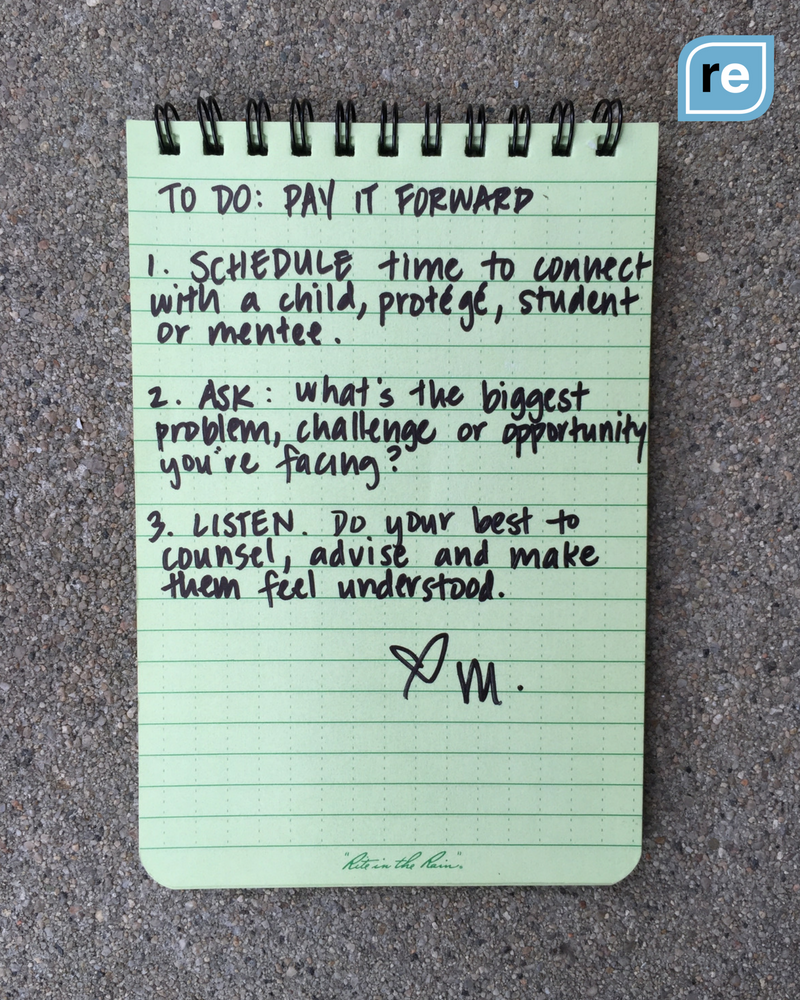 re
TO DO: PAY IT FORWARD
1. SCHEDULE time to connect
with a child, protégé, student
or mentee.
2. ASK: what's the biggest
problem, challenge or opportunity
you're facing?
3. LISTEN. Do your best to
counsel, advise and make
them feel understood.
♡ m.
"Rite in the Rain"